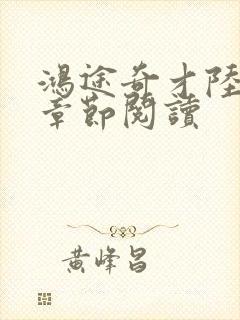 鴻途奇才陸
章節閱讀
黃峰昌